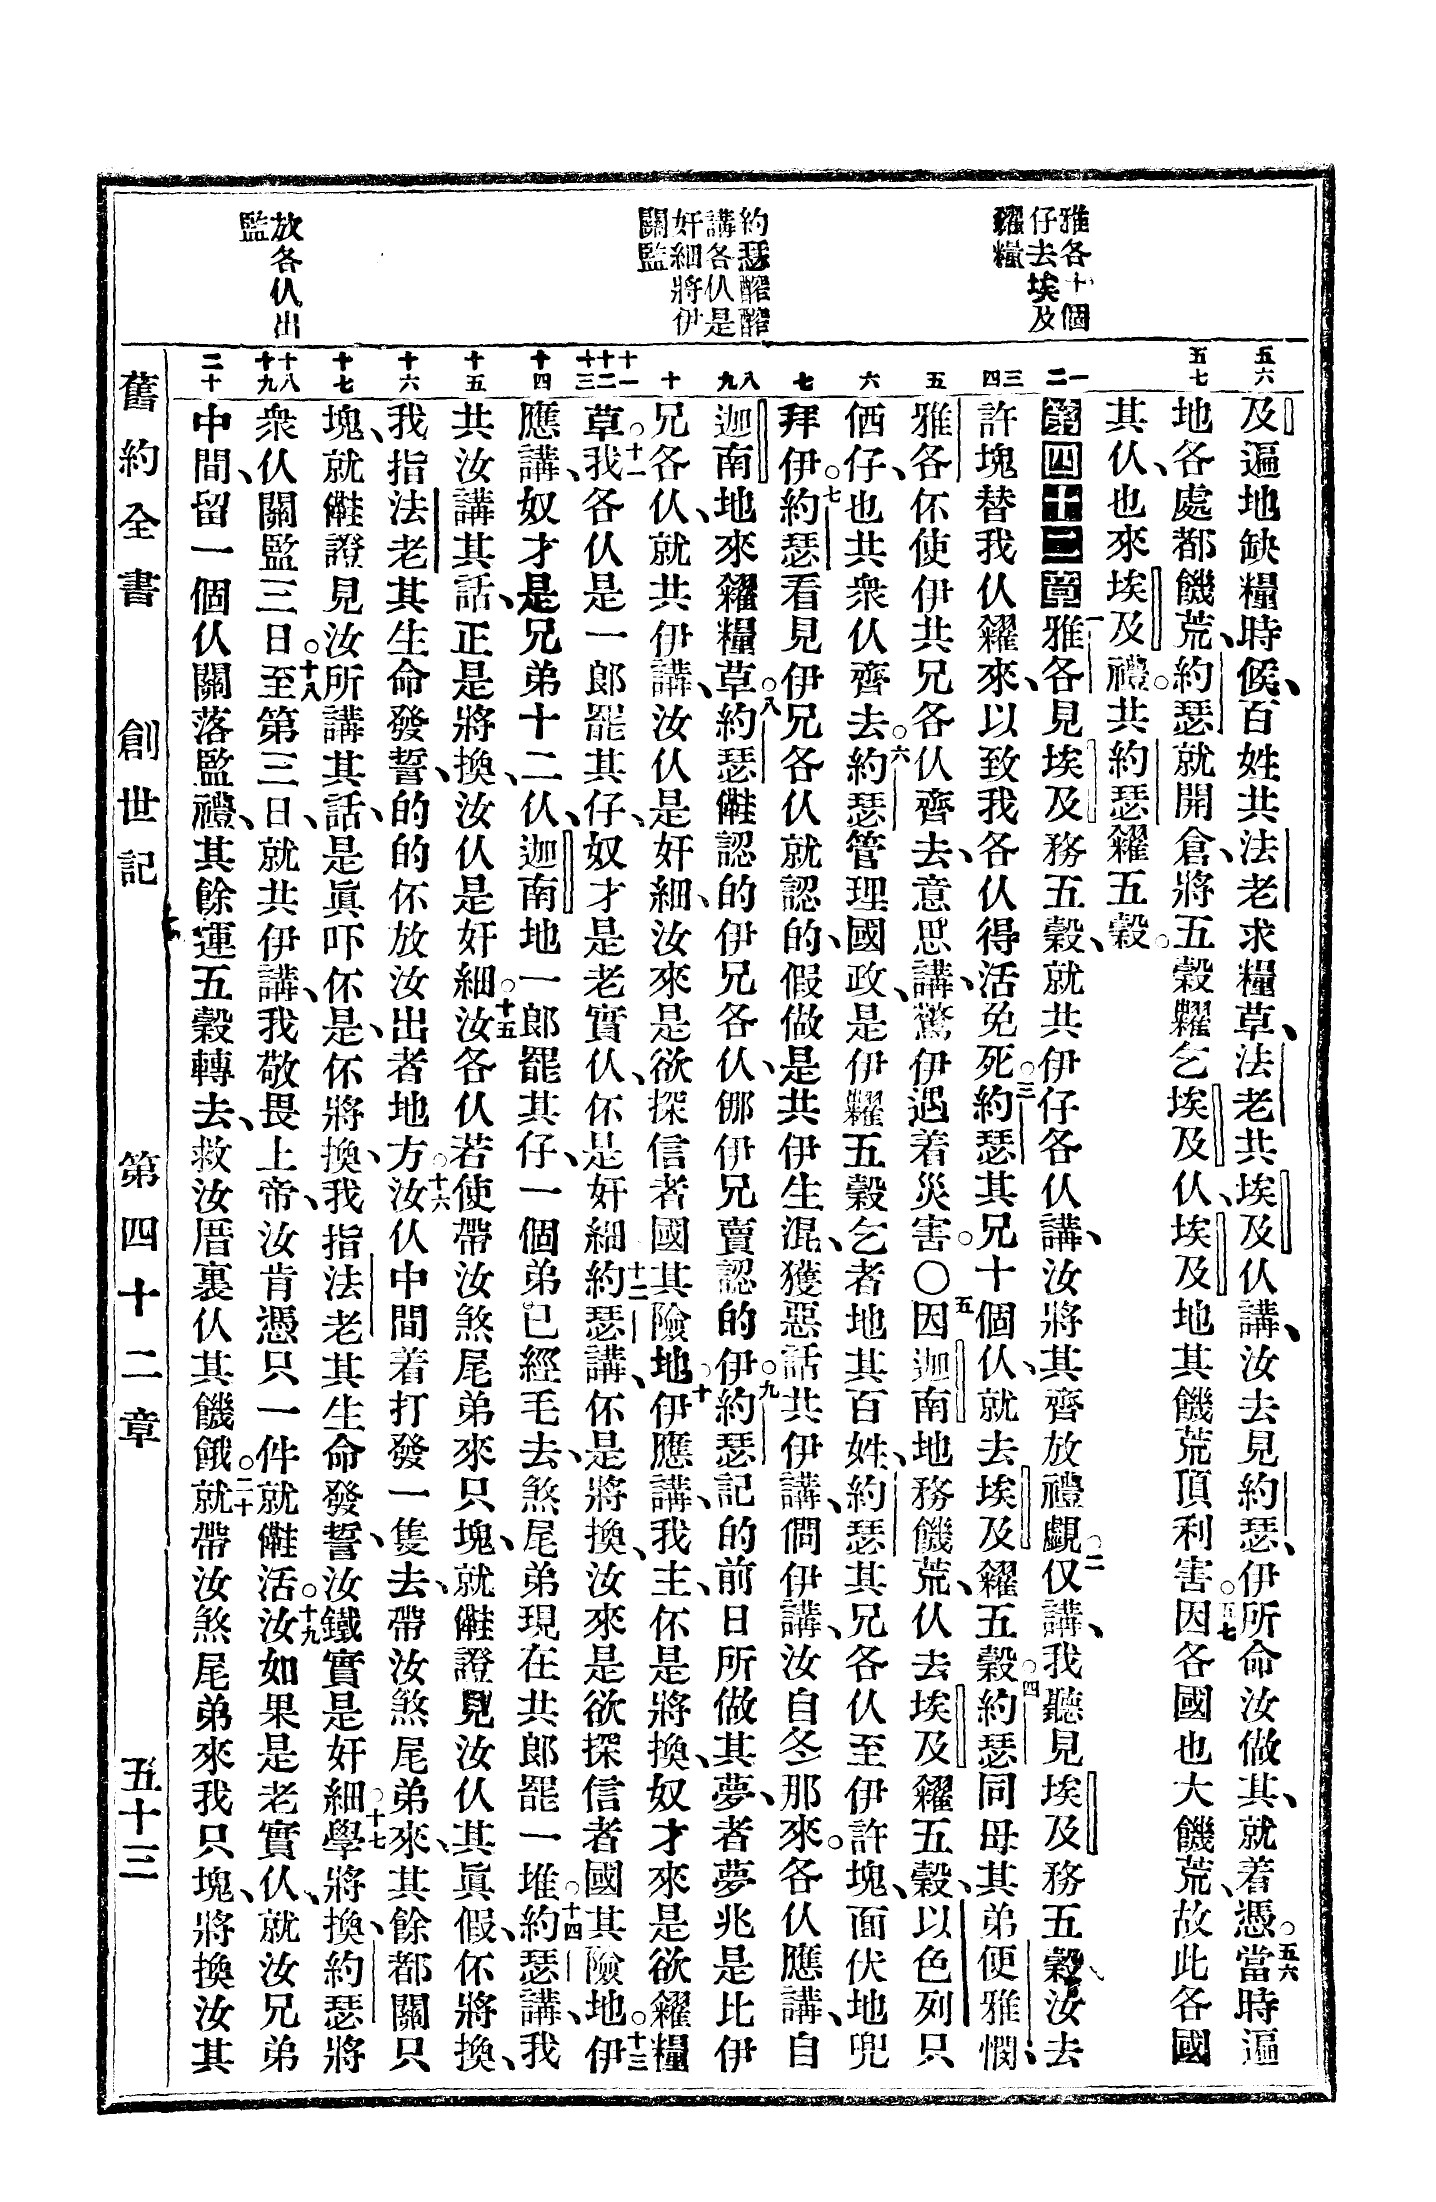 雅各十個
仔去埃及
糴糧
約瑟醡醡
講各仈是
奸細將伊
關監
放各仈出
監
五六
五七
一二
三四
五
六
七
八九
十
十一十二十三
十四
十五
十六
十七
十八十九
二十
及遍地缺糧時候、百姓共法老求糧草、法老共埃及仈講、汝去見約瑟、伊所命汝做其、就着憑。五六當時遍
地各處都饑荒、約瑟就開倉、將五穀糶乞埃及仈、埃及地其饑荒頂利害。五七因各國也大饑荒、故此各國
其仈、也來埃及禮共約瑟糴五穀。
第四十二章一雅各見埃及務五穀、就共伊仔各仈講、汝將其齊放禮覷。二仅講、我聽見埃及務五穀、汝去
許塊替我仈糴來、以致我各仈得活免死。三約瑟其兄十個仈、就去埃及糴五穀。四約瑟同母其弟便雅憫、
雅各伓使伊共兄各仈齊去、意思講、驚伊遇着災害。〇五因迦南地務饑荒、仈去埃及糴五穀、以色列只
仾仔、也共衆仈齊去。六約瑟管理國政、是伊糶五穀乞者地其百姓、約瑟其兄各仈至伊許塊、面伏地兜
拜伊。七約瑟看見伊兄各仈就認的、假做是共伊生混、獲惡話共伊講、伵伊講、汝自冬那來。各仈應講、自
迦南地來糴糧草。八約瑟𣍐認的伊兄各仈、㑚伊兄賣認的伊。九約瑟記的前日所做其夢、者夢兆是比伊
兄各仈、就共伊講、汝仈是奸細、汝來是欲探信者國其險地。十伊應講、我主、伓是將換、奴才來是欲糴糧
草。十一我各仈是一郎罷其仔、奴才是老實仈、伓是奸細。十二約瑟講、伓是將換、汝來是欲探信者國其險地。十三伊
應講、奴才是兄弟十二仈、迦南地一郎罷其仔、一個弟已經毛去、煞尾弟現在共郎罷一堆。十四約瑟講、我
共汝講其話、正是將換、汝仈是奸細。十五汝各仈若使帶汝煞尾弟來只塊、就𣍐證見汝仈其眞假、伓將換、
我指法老其生命發誓、的的伓放汝出者地方。十六汝仈中間着打發一隻去、帶汝煞尾弟來、其餘都關只
塊、就𣍐證見汝所講其話、是眞吓伓是、伓將換、我指法老其生命發誓、汝鐵實是奸細。十七學將換、約瑟將
衆仈關監三日。十八至第三日、就共伊講、我敬畏上帝、汝肯憑只一件就𣍐活。十九汝如果是老實仈、就汝兄弟
中間、留一個仈關落監禮、其餘運五穀轉去、救汝厝裏仈其饑餓。二十就帶汝煞尾弟來我只塊、將換汝其
舊約全書　創世記　第四十二章　五十三